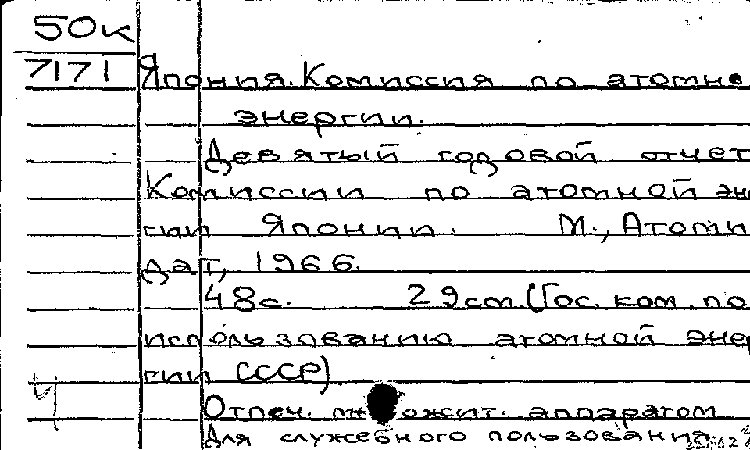 50к
7171 Япония. Комиссия по атомно
энергии.
Девятый годовой отчет
Комиссии по атомной эн
гии Японии. М., Атоми
дат, 1966.
48с. 29cm. (Гос. ком. по
использованию атомной энер
гии СССР)
Отпеч. аппаратом
Для служебного пользования